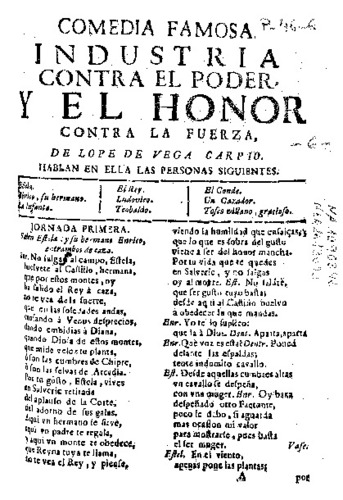 COMEDIA FAMOSA.
INDUSTRIA
CONTRA EL PODER,
Y EL HONOR
CONTRA LA FUERZA,
DE LOPE DE VEGA CARPIO.
HABLAN EN ELLA LAS PERSONAS SIGUIENTES.
Enrico, su hermano.
La Infanta.
El Rey.
Ludovico.
Teobaldo.
El Conde.
Un Cazador.
Tosco villano, gracioso.
JORNADA PRIMERA.
Salen Estela, y su hermano Enrico,
entrambos de caza.
No salgas al campo, Estela,
buelvete al Castillo, hermana,
que por estos montes, oy
ha salido el Rey à caza,
no te vea de la suerte,
que en las soledades andas,
à Venus desprecios,
dando embidias à Diana,
quando Diosa de estos montes,
que mide veloz tu planta,
ò son las cumbres de Chipre,
ò son las selvas de Arcadia.
Por tu gusto, Estela, vives
en Salveric retirada
del aplauso de la Corte,
del adorno de sus galas.
Aqui un hermano te sirve,
aqui un padre te regala,
y aqui un monte te obedece,
que Reyna tuya te llama,
no te vea el Rey, y piense,
viendo la humildad que ensalzas,
que lo que es sobra del gusto
viene à ser del honor mancha.
Por tu vida que te quedes
en Salveric, y no salgas
oy al monte. Est. No saldrè,
que ser gusto tuyo basta;
desde aqui al Castillo buelvo
à obedecer lo que mandas.
Enr. Yo te lo suplico;
que la à Dios. Dent. Aparta, aparta
Enr. Què voz es esta? Dentr. Poned
delante las espaldas;
tente indomito cavallo.
Est. Desde aquellas cumbres altas
un cavallo se despeña,
con una muger. Enr. Oy baxa
despeñado otro Faetonte,
poco te dirè, si aguarda
mas ocasion mi valor
para mostrarse, pues basta
el ser muger. Vase.
Estel. En el viento,
apenas pone las plantas;
A
por